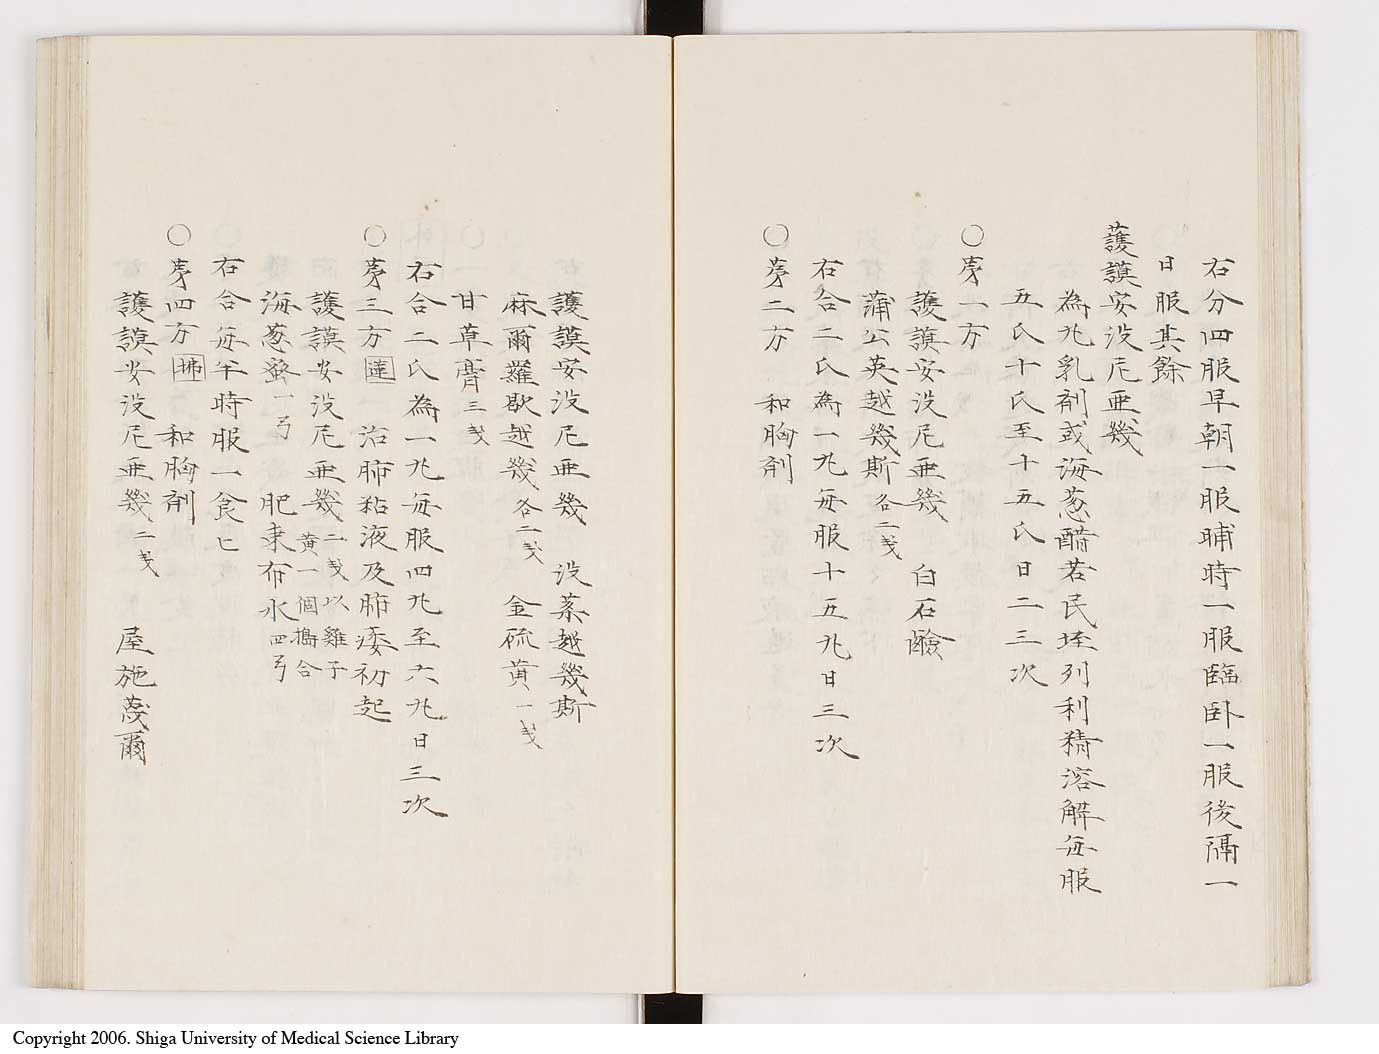 右分四服早朝一服晡時一服臨卧一服後隔一
日服其餘
護謨安没尼亜幾
為丸乳剤或海葱醋若民垤列利精溶解毎服
五氏十氏至十五氏日二三次
○第一方
護謨安没尼亜幾　白石鹼
蒲公英越幾斯各二戔
右合二氏為一丸毎服十五丸日三次
○第二方　和胸剤
護謨安没尼亜幾　没菜越幾斯
麻爾羅歇越幾各二戔　金硫黄一戔
甘草膏三戔
右合二氏為一丸毎服四丸至六丸日三次
○第三方蓮　治肺粘液及肺痿初起
護謨安没尼亜幾二戔以雞子黄一個搗合
海葱蜜一弓　肥東布水四弓
右合毎半時服一食匕
○第四方弗　和胸剤
護謨安没尼亜幾二戔　屋施蔑爾
Copyright 2006. Shiga University of Medical Science Library